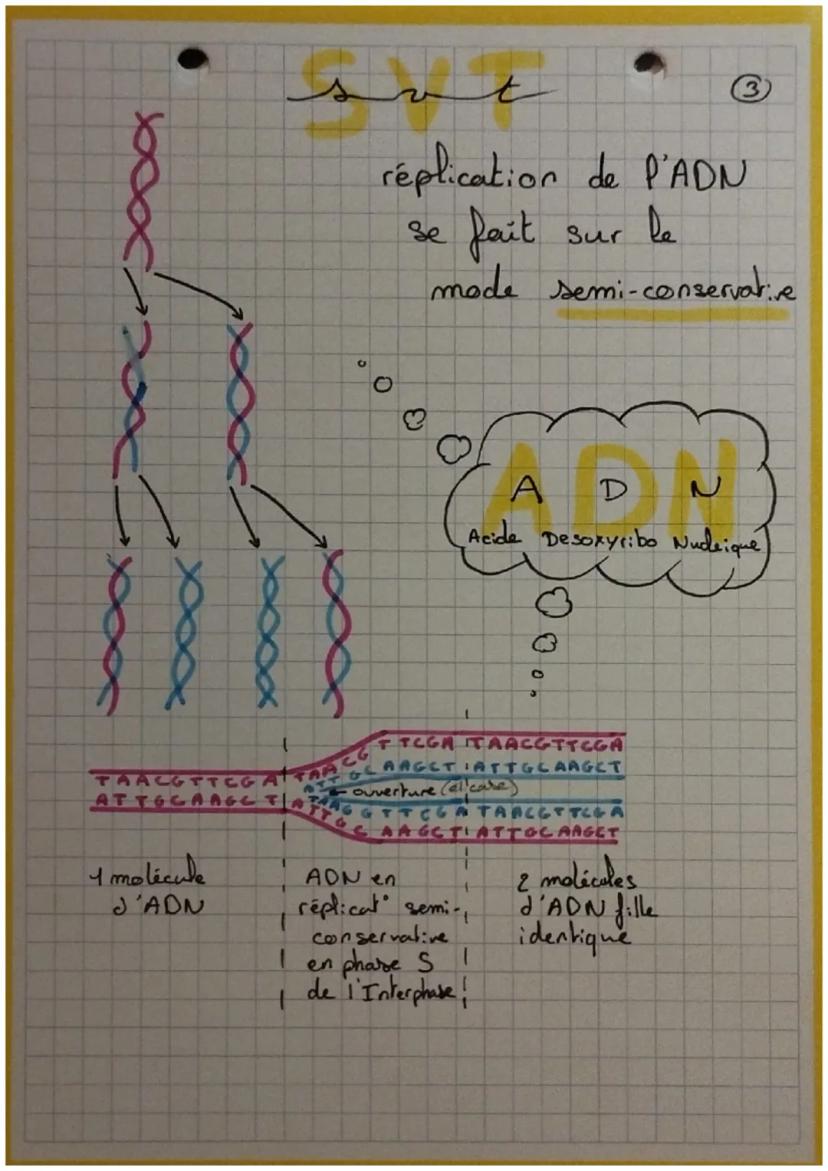 SVT
svt
3
réplication de l'ADN
se fait sur le
mode semi-conservative
ADN
A D N
Acide Desoxyribo Nucleique
TTCGA TAACGTTCGA
TAACG
GCAAGCT ATTGCAAGCT
ATT
TAACGTTCGA
ouverture
ATTGCAAGCT
TAAGGTTCGA TAACGTTCGA
ATTGC AAGCT ATTGCAAGCT
1 molécule
d'ADN
ADN en
réplicat° semi-
conservative
en phase S
de l'Interphase
2 molécules
d'ADN fille
identique